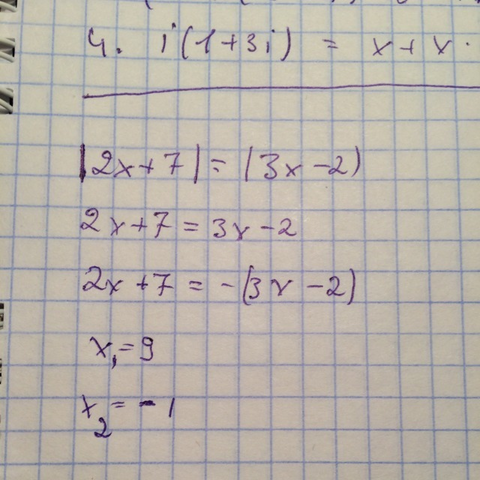 4. i(1+3i) = x+x.
|2x+7| = |3x-2)
2x+7 = 3x-2
2x+7 = -(3x-2)
x₁=9
x₂=-1